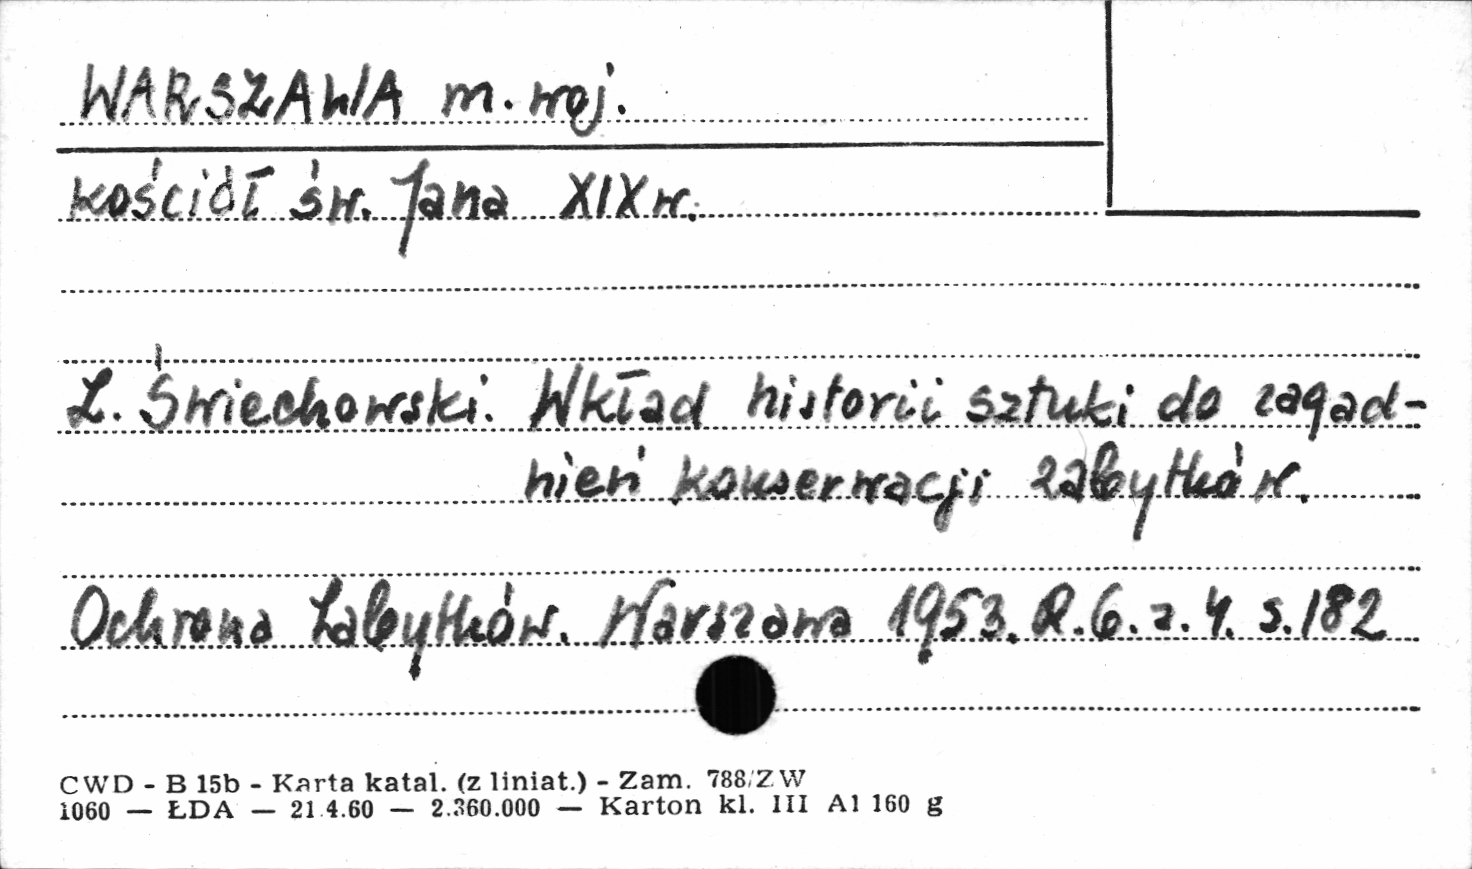 WARSZAWA m. woj.
kościół św. Jana XIX w.
L. Świechowski. Wkład historii sztuki do zagad-
nień konserwacji zabytków.
Ochrona Zabytków. Warszawa 1953. R.6. z.4. s.182
CWD - B 15b - Karta katal. (z liniat.) - Zam. 788/ZW
1060 — ŁDA — 21.4.60 — 2.360.000 — Karton kl. III A1 160 g